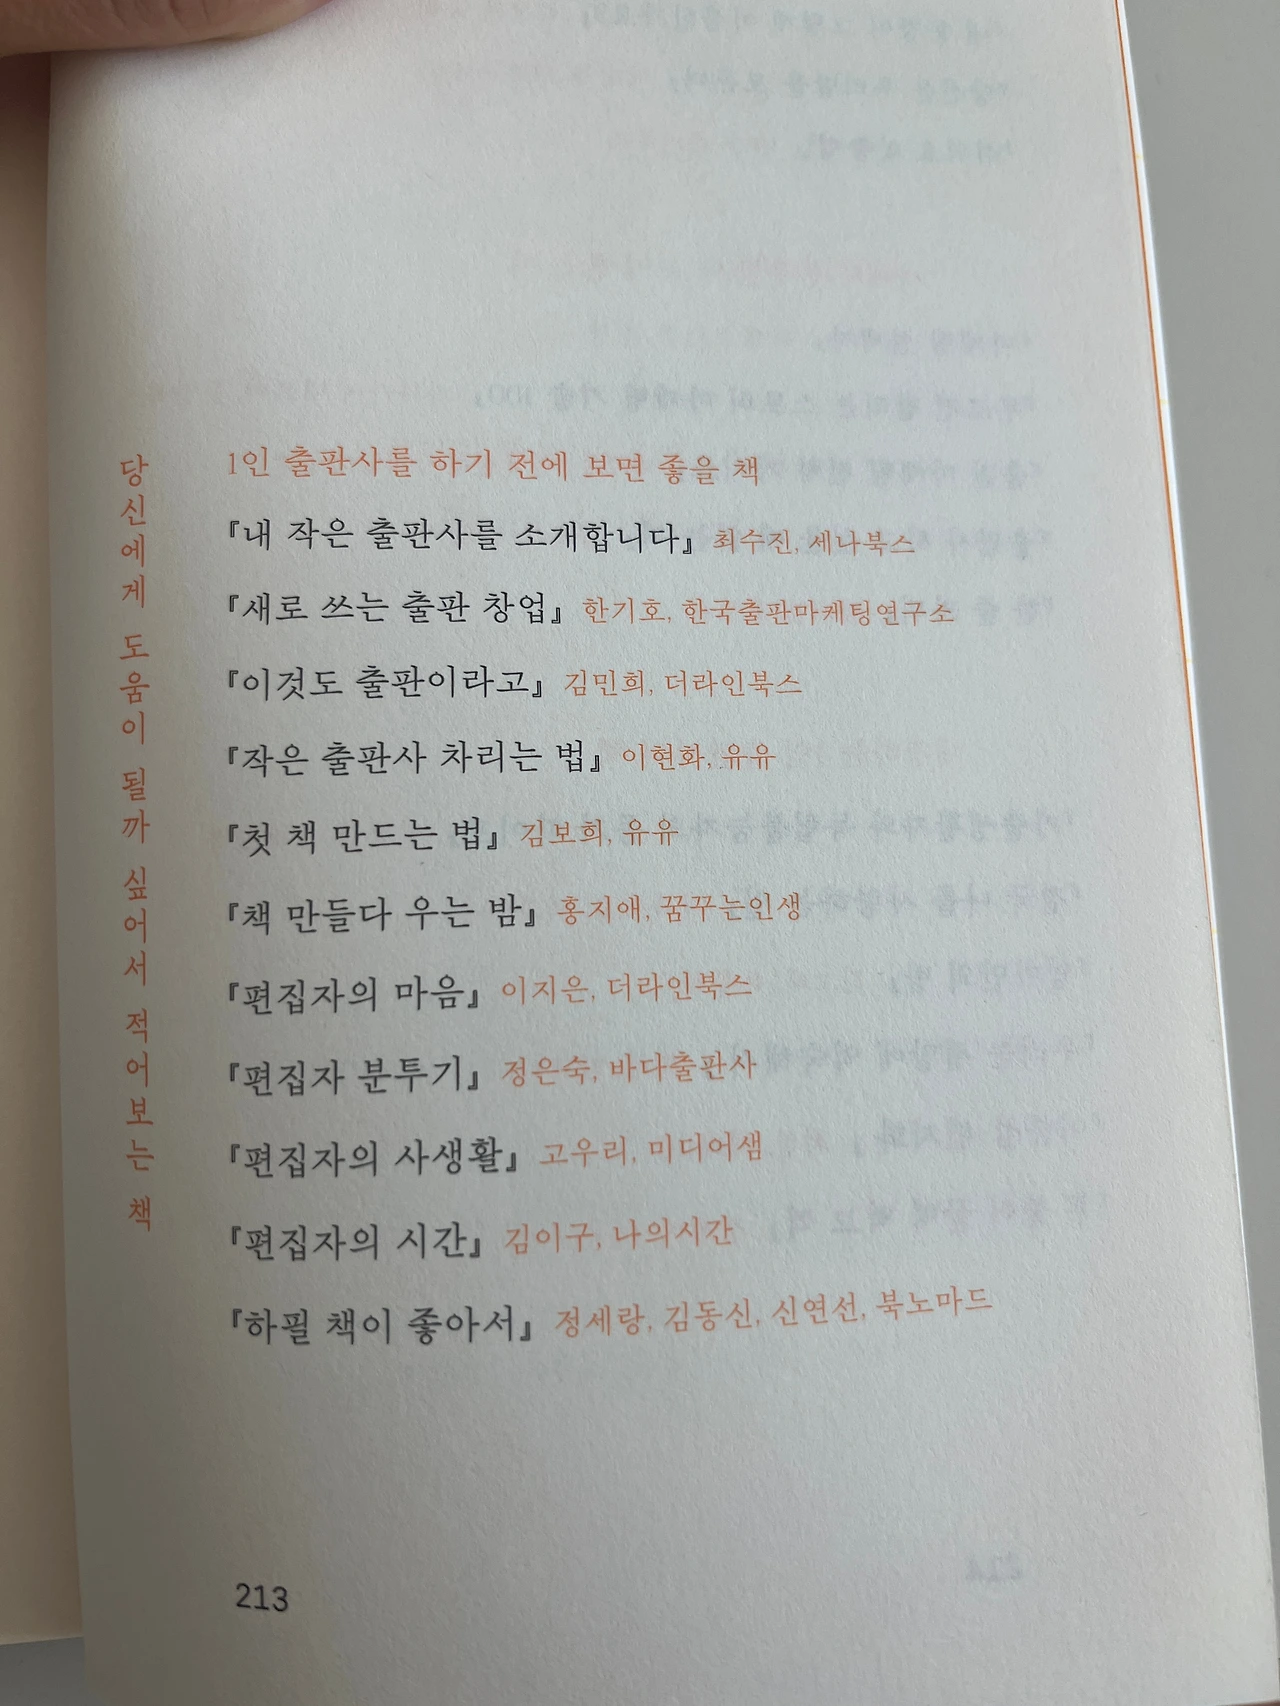 당신에게 도움이 될까 싶어서 적어보는 책
1인 출판사를 하기 전에 보면 좋을 책
『내 작은 출판사를 소개합니다』 최수진, 세나북스
『새로 쓰는 출판 창업』 한기호, 한국출판마케팅연구소
『이것도 출판이라고』 김민희, 더라인북스
『작은 출판사 차리는 법』 이현화, 유유
『첫 책 만드는 법』 김보희, 유유
『책 만들다 우는 밤』 홍지애, 꿈꾸는인생
『편집자의 마음』 이지은, 더라인북스
『편집자 분투기』 정은숙, 바다출판사
『편집자의 사생활』 고우리, 미디어샘
『편집자의 시간』 김이구, 나의시간
『하필 책이 좋아서』 정세랑, 김동신, 신연선, 북노마드
213